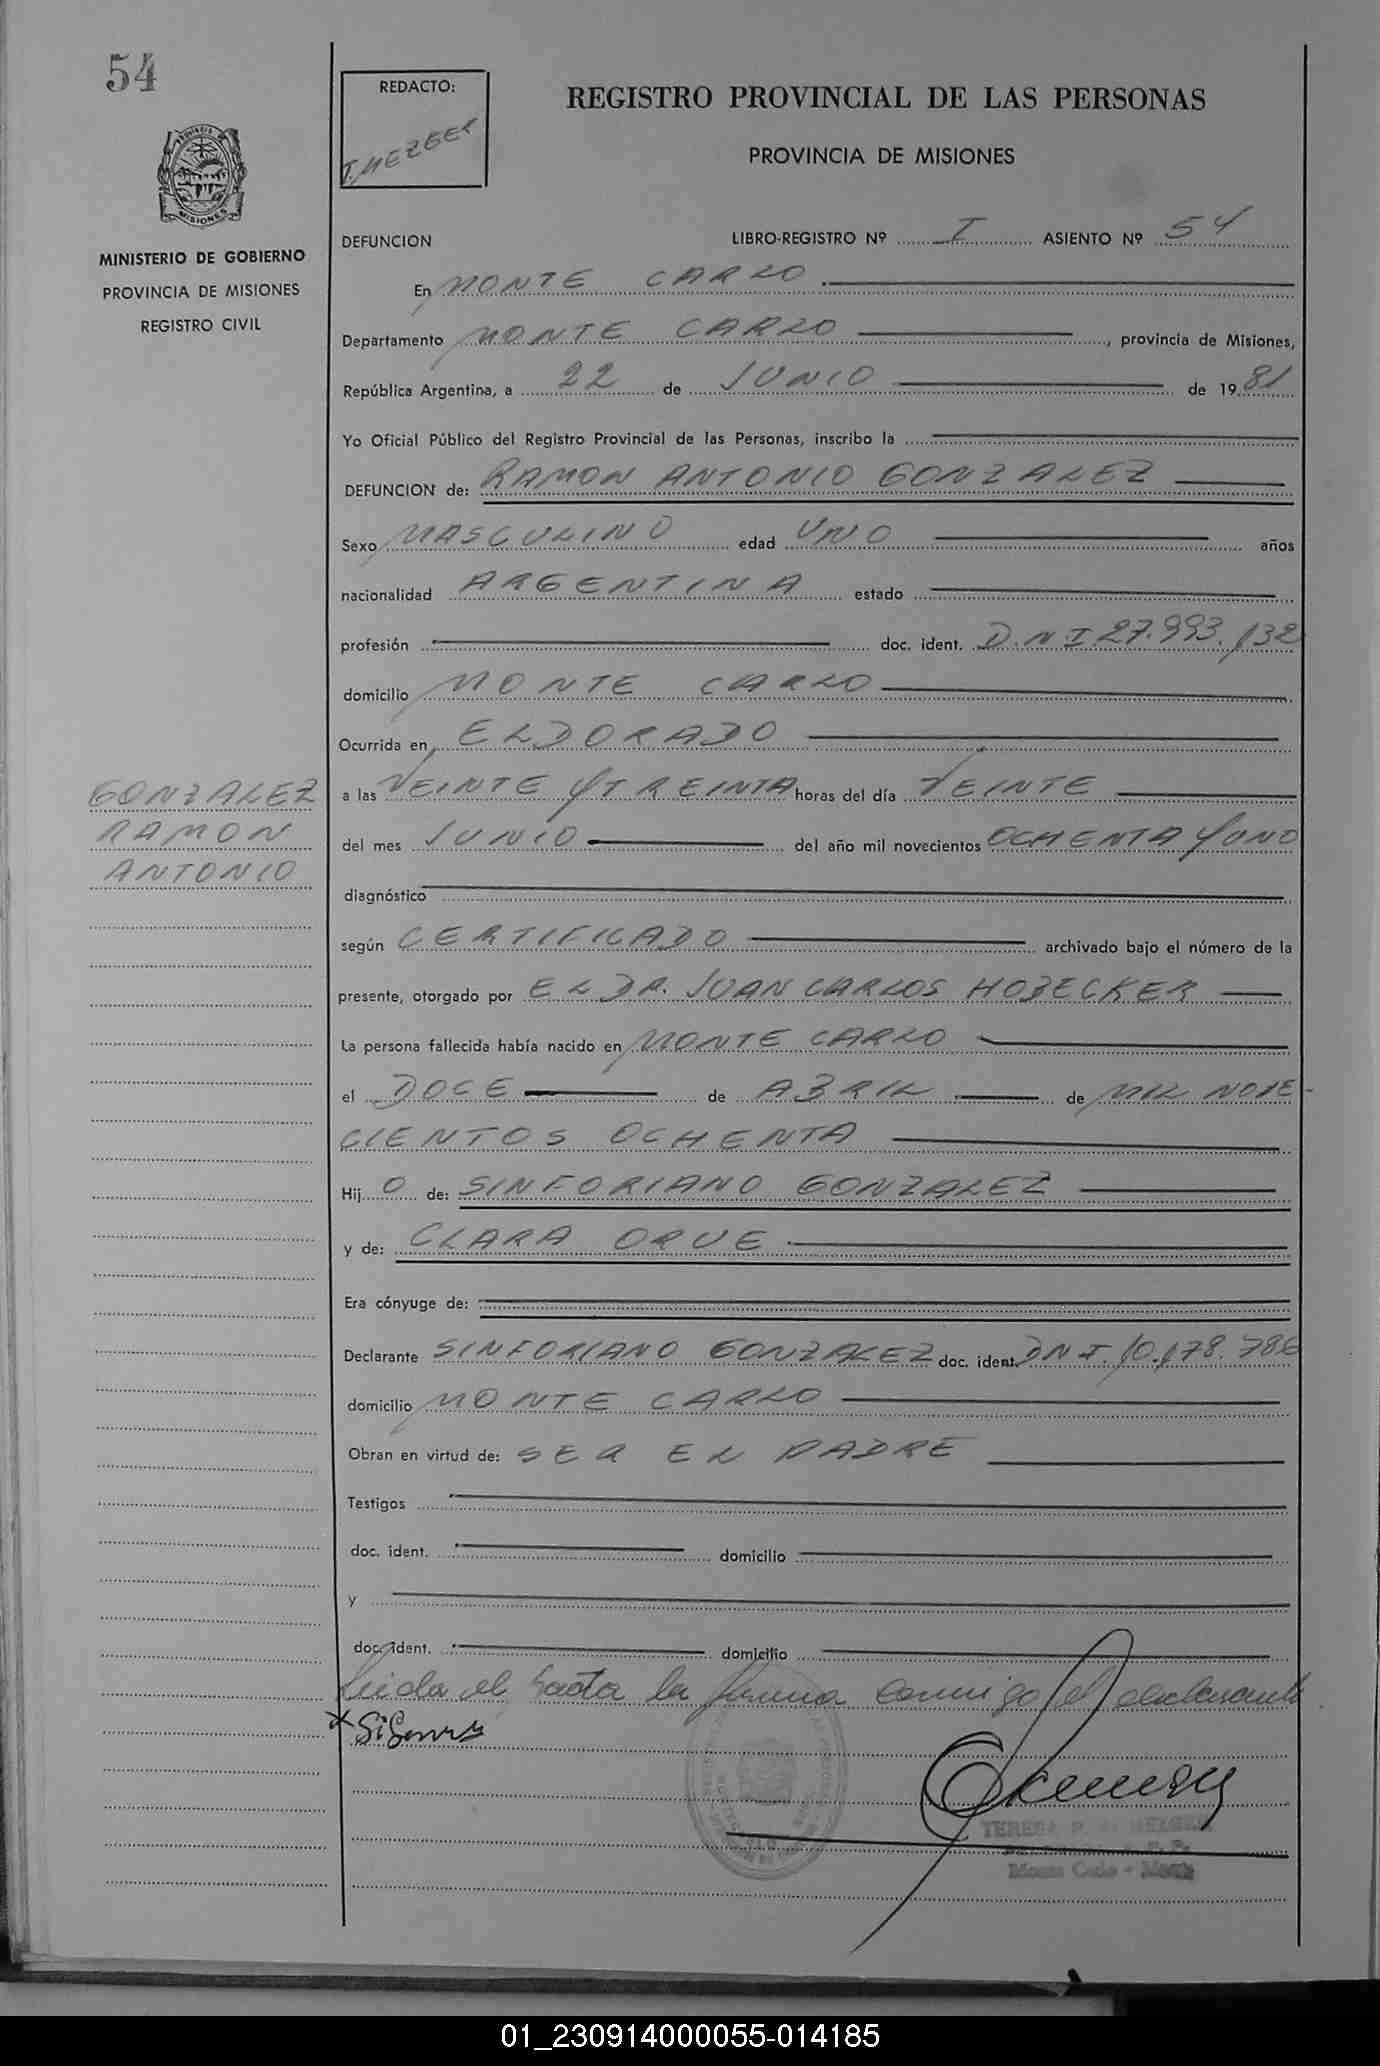 54
REDACTO:
T. MEZGER
REGISTRO PROVINCIAL DE LAS PERSONAS
PROVINCIA DE MISIONES
PROVINCIA DE
MISIONES
MINISTERIO DE GOBIERNO
PROVINCIA DE MISIONES
REGISTRO CIVIL
DEFUNCION LIBRO-REGISTRO Nº I ASIENTO Nº 54
En MONTE CARLO
Departamento MONTE CARLO, provincia de Misiones,
República Argentina, a 22 de JUNIO de 1981
Yo Oficial Público del Registro Provincial de las Personas, inscribo la
DEFUNCION de: RAMON ANTONIO GONZALEZ
Sexo MASCULINO edad UNO años
nacionalidad ARGENTINA estado
profesión doc. ident. D.N.I. 27.993.132
domicilio MONTE CARLO
Ocurrida en ELDORADO
GONZALEZ
RAMON
ANTONIO
a las VEINTE Y TREINTA horas del día VEINTE
del mes JUNIO del año mil novecientos OCHENTA Y UNO
diagnóstico
según CERTIFICADO archivado bajo el número de la
presente, otorgado por EL DR. JUAN CARLOS HOBECKER
La persona fallecida había nacido en MONTE CARLO
el DOCE de ABRIL de MIL NOVE-
CIENTOS OCHENTA
Hij O de: SINFORIANO GONZALEZ
y de: CLARA ORUE
Era cónyuge de:
Declarante SINFORIANO GONZALEZ doc. ident. DNI. 10.178.786
domicilio MONTE CARLO
Obran en virtud de: SER EL PADRE
Testigos
doc. ident. domicilio
y
doc. ident. domicilio
Leida el acta la firma conmigo el declarante
TERESA
Monte Carlo -
01_230914000055-014185